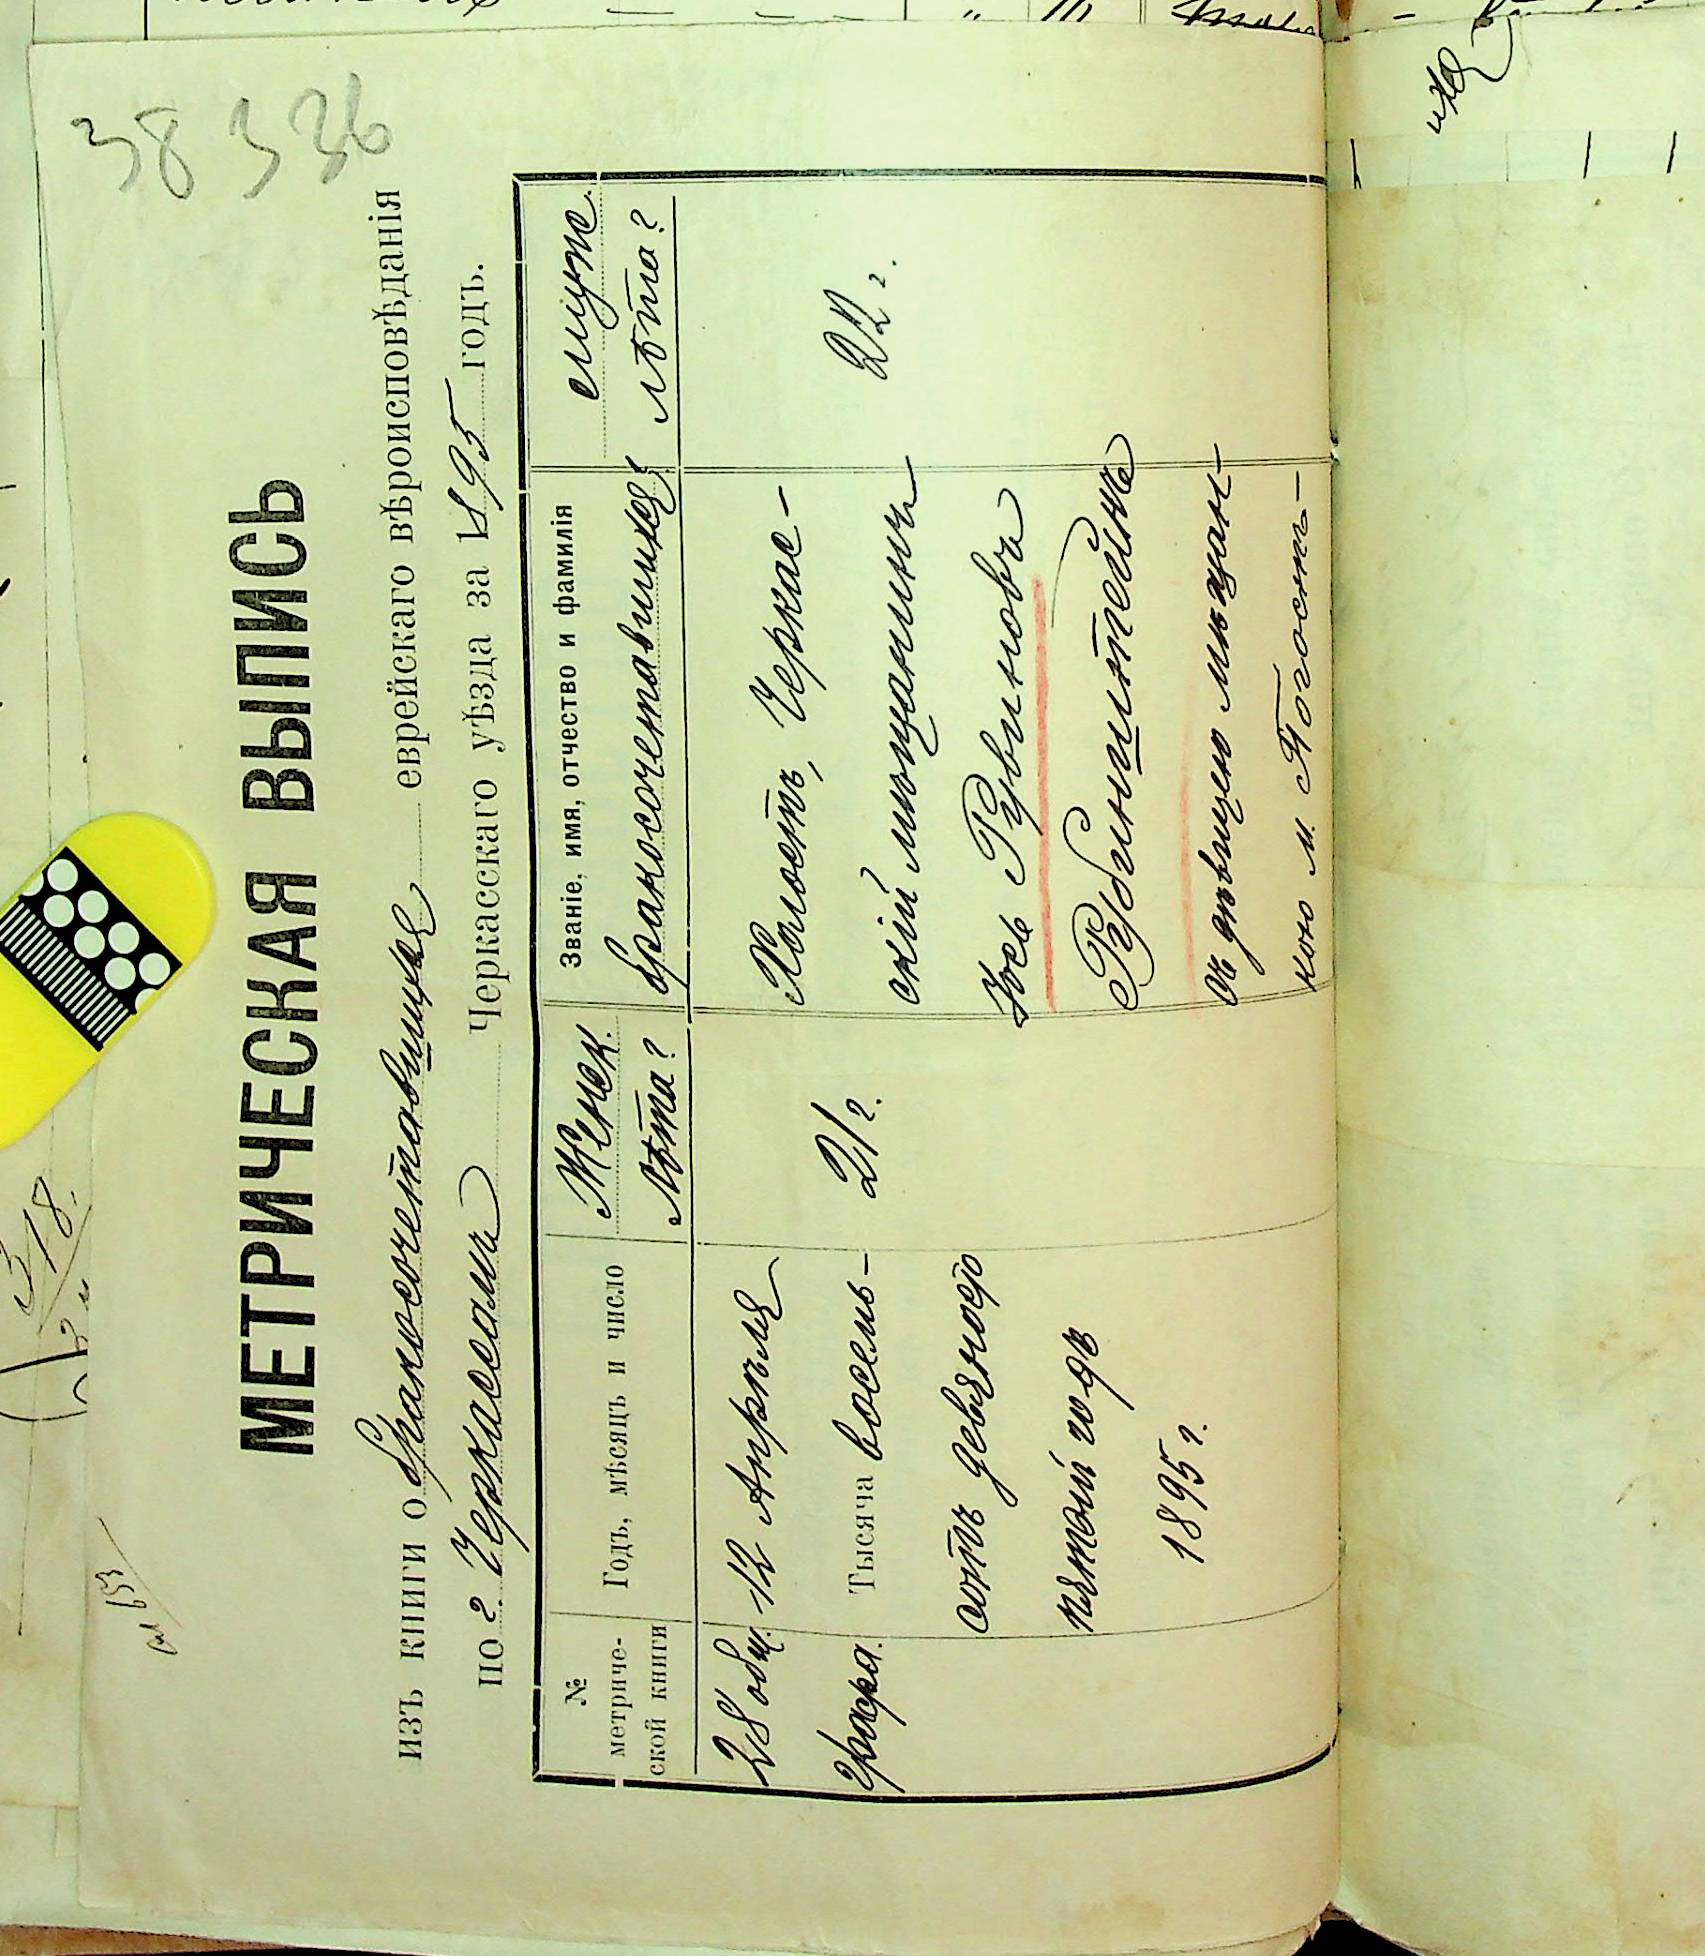 38 336
МЕТРИЧЕСКАЯ ВЫПИСЬ
изъ книги о бракосочетавшихся еврейскаго вѣроисповѣданія
по г. Черкассамъ Черкасскаго уѣзда за 1895 годъ.
№ метриче-
ской книги
Годъ, мѣсяцъ и число
Женск.
лѣта?
Званіе, имя, отчество и фамилія
бракосочетавшихся?
мужс.
лѣта?
28 общ.
графа.
12 Апрѣля
Тысяча восемь-
сотъ девяносто
пятый годъ
1895 г.
21 г.
Холостъ, Черкас-
скій мѣщанинъ
Іось Рувиновъ
Рубинштейнъ
съ дѣвицею мѣщан-
кою м. Погостъ-
22 г.